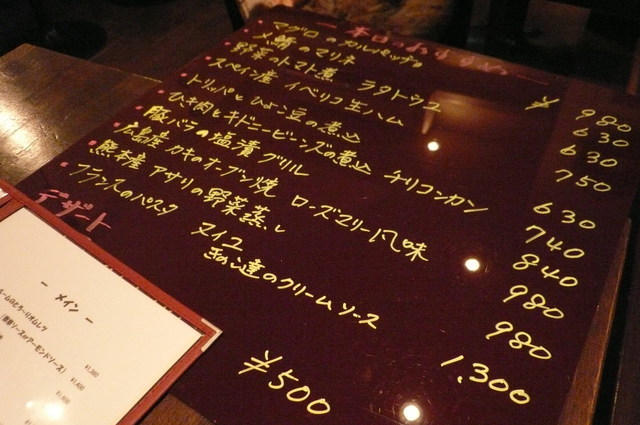 本日のおすすめ
マグロのカルパッチョ ¥980
〆鯖のマリネ 630
野菜のトマト煮 ラタトゥユ 630
スペイン産 イベリコ生ハム 750
トリッパとひよこ豆の煮込 630
ひき肉とキドニービーンズの煮込 チリコンカン 740
豚バラの塩漬グリル 840
広島産 カキのオーブン焼 ローズマリー風味 980
熊本産 アサリの野菜蒸し 980
フランスのパスタ ヌイユ
きのこ達のクリームソース 1,300
デザート ¥500
ー メイン ー